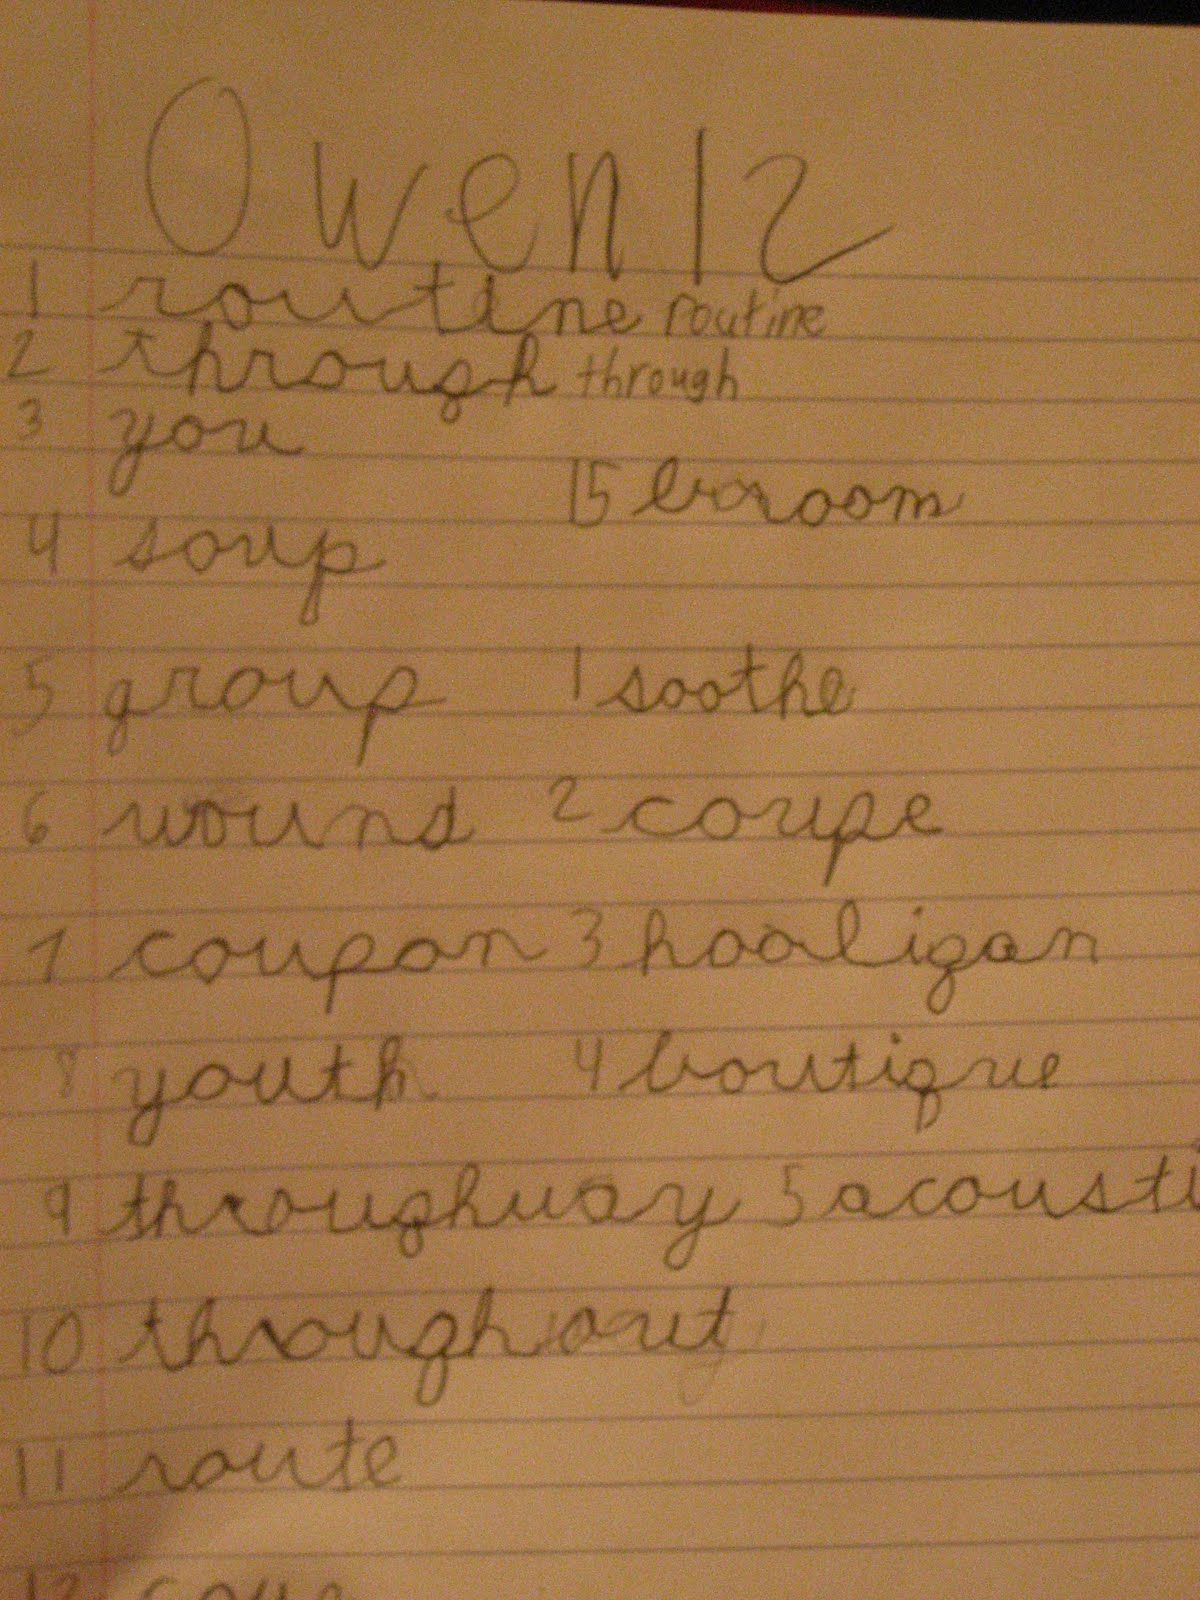 Owen 12
1 routine routine
2 through through
3 you
15 broom
4 soup
5 group 1 soothe
6 wound 2 coupe
7 coupon 3 hooligan
8 youth 4 boutique
9 throughway 5 acousti
10 throughout
11 route
12